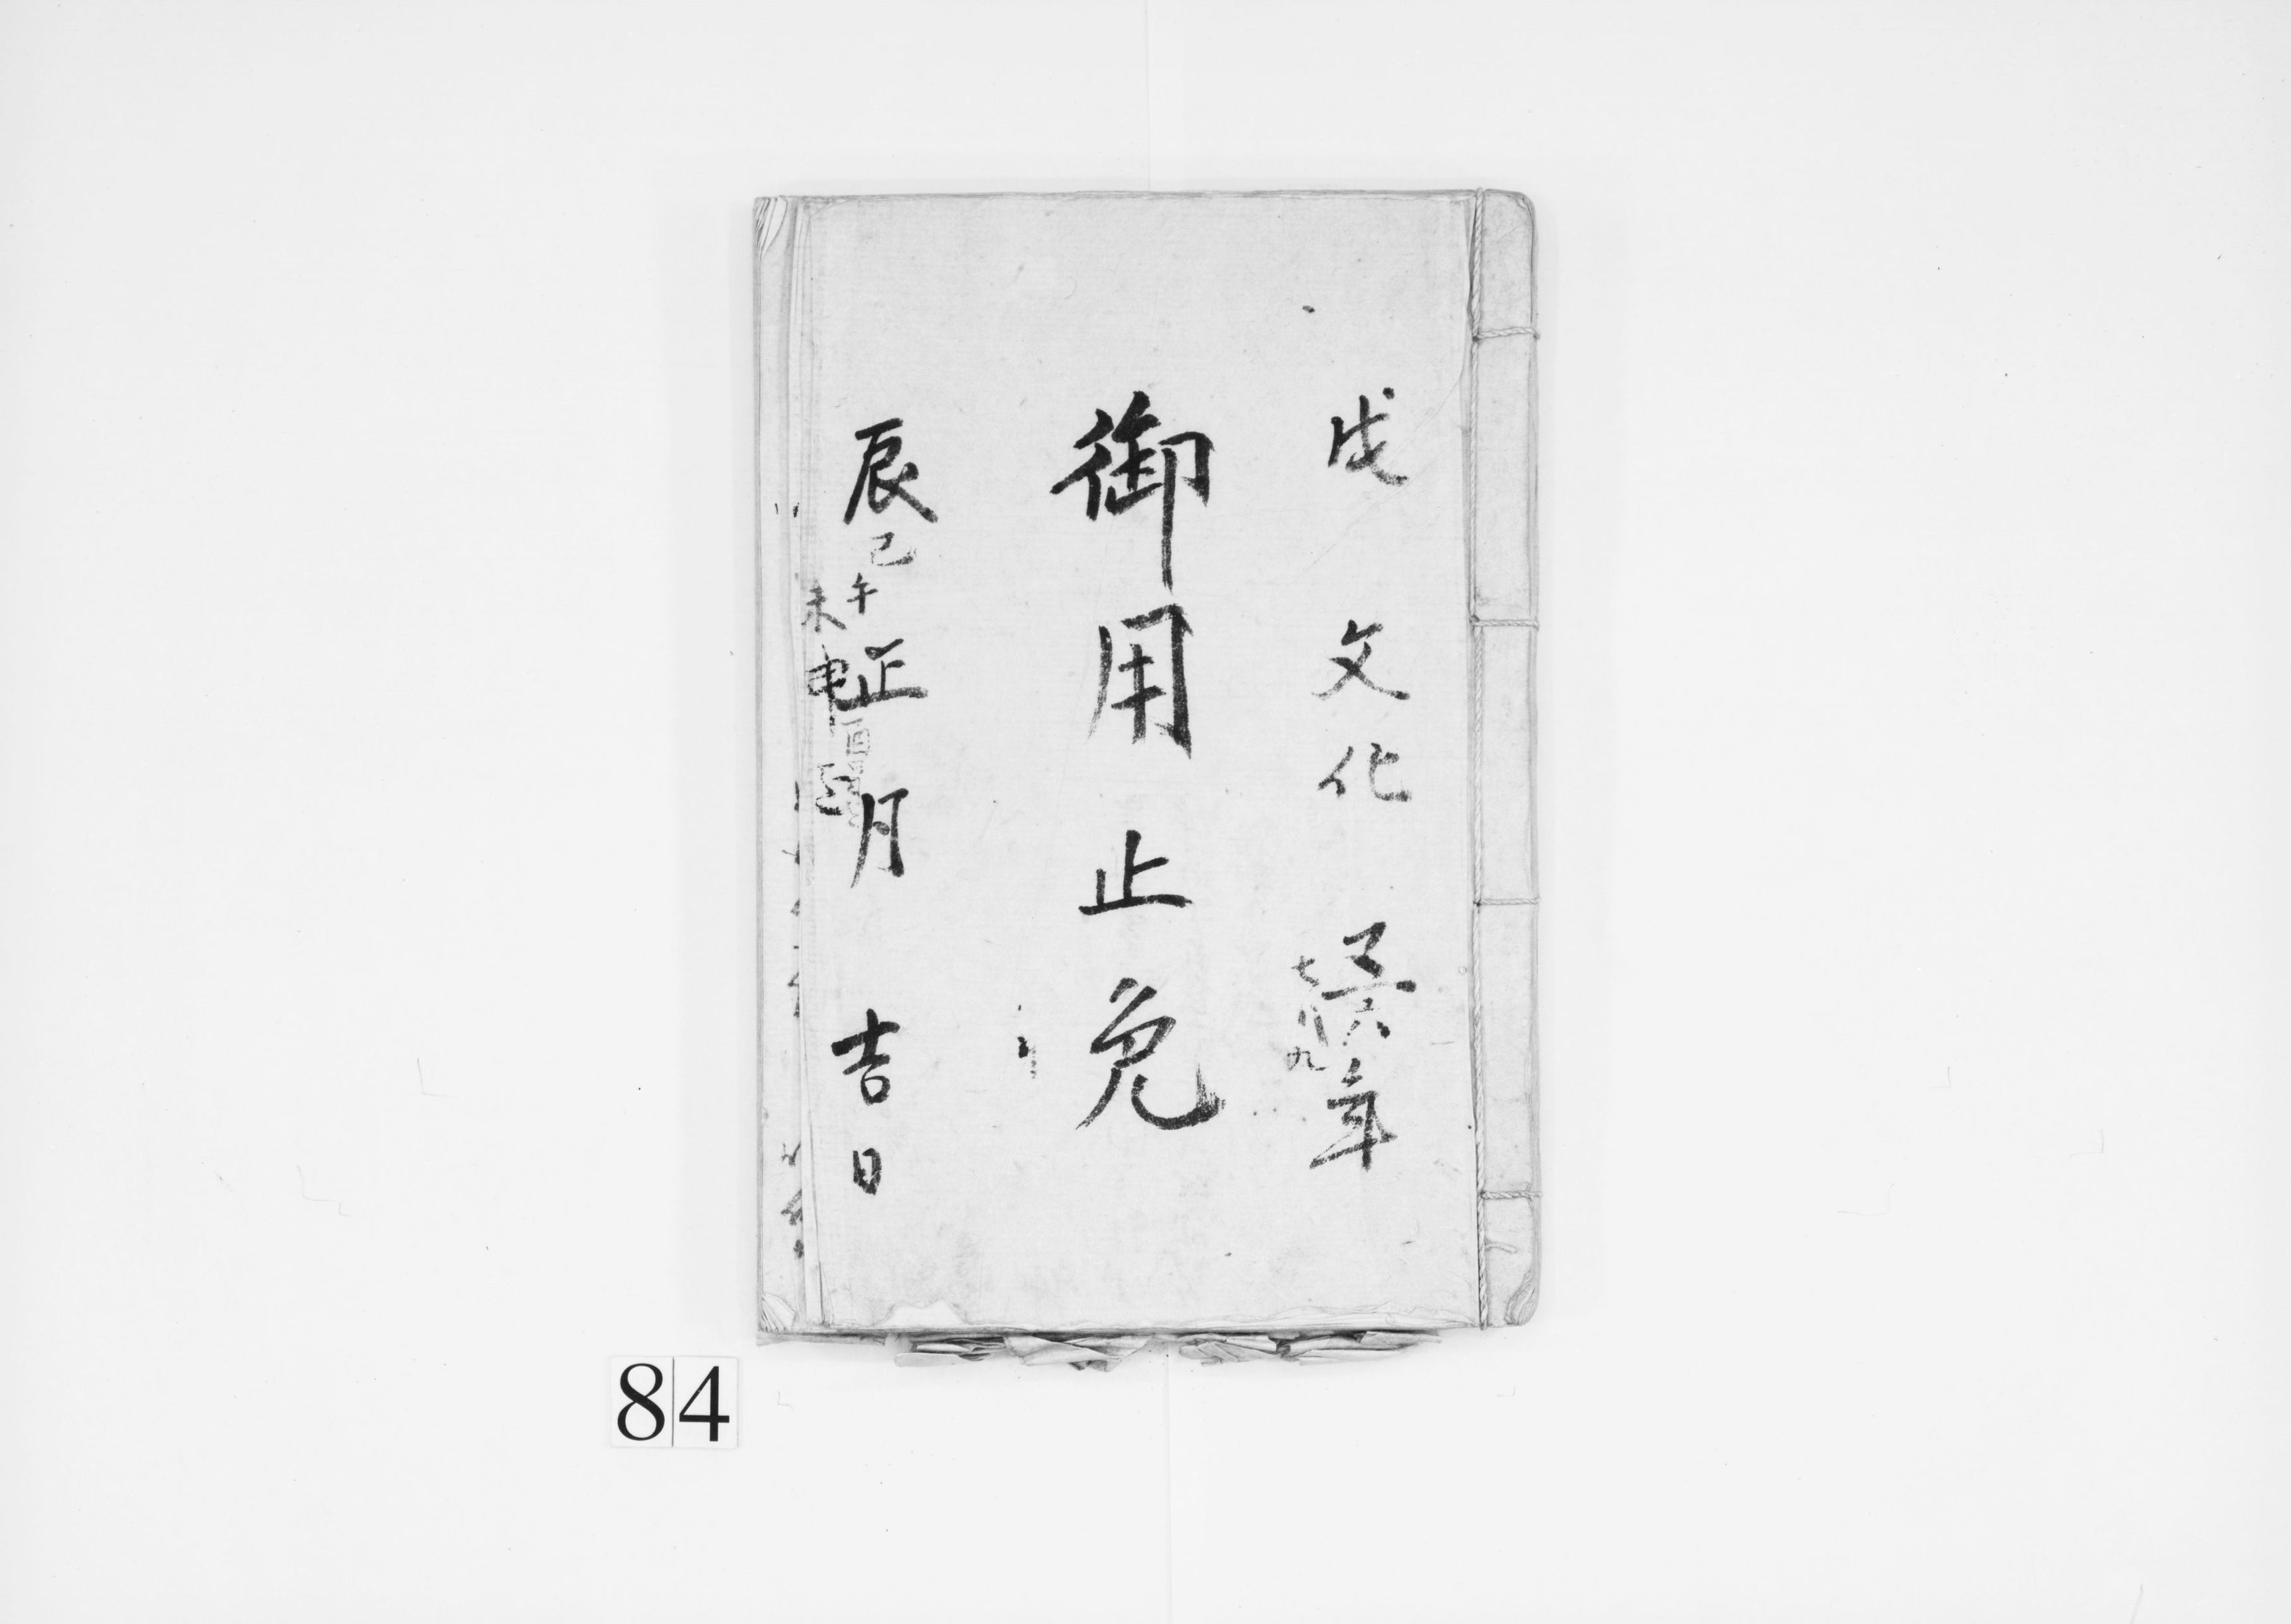 戌 文化 五六七八九年
御用止免
辰巳午未申酉正月 吉日
84